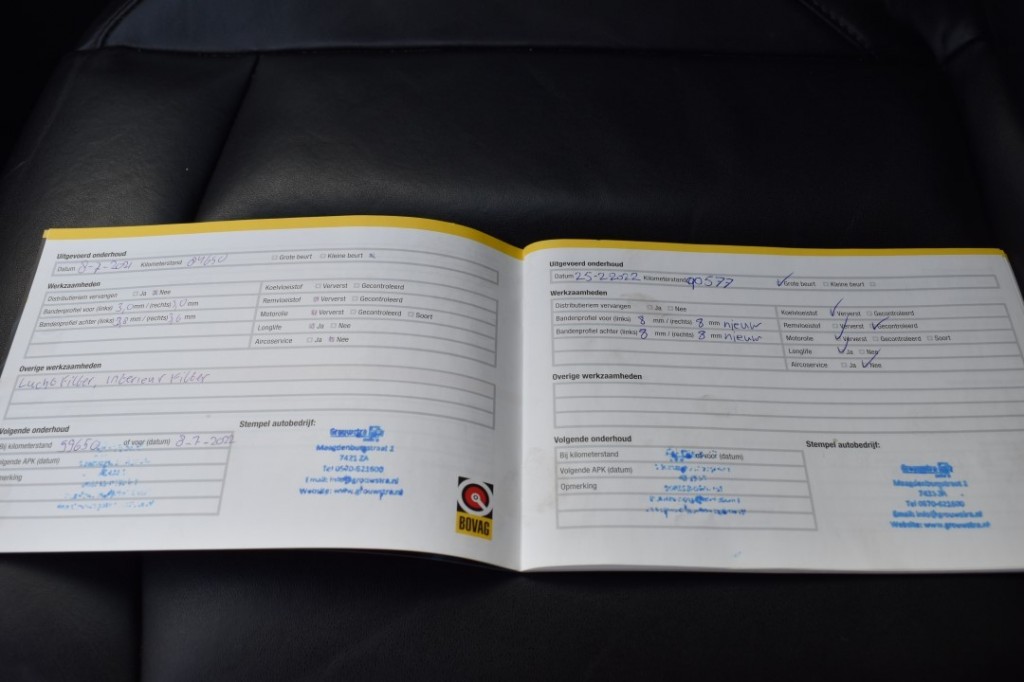 Uitgevoerd onderhoud
Datum 8-7-2021 Kilometerstand Grote beurt Kleine beurt
Werkzaamheden
Distributieriem vervangen Ja Nee
Bandenprofiel voor (links) mm / (rechts) mm
Bandenprofiel achter (links) mm / (rechts) mm
Koelvloeistof Ververst Gecontroleerd
Remvloeistof Ververst Gecontroleerd
Motorolie Ververst Gecontroleerd Soort
Longlife Ja Nee
Aircoservice Ja Nee
Overige werkzaamheden
Luchtfilter, interieurfilter
Volgende onderhoud
Bij kilometerstand of voor (datum) 8-7-2022
Volgende APK (datum)
Opmerking
Stempel autobedrijf:
Grouwstra
Maagdenburgstraat 2
7421 ZA
Tel 0570-621600
Email: info@grouwstra.nl
Website: www.grouwstra.nl
BOVAG
Uitgevoerd onderhoud
Datum 25-2 2022 Kilometerstand 90577 Grote beurt Kleine beurt
Werkzaamheden
Distributieriem vervangen Ja Nee
Bandenprofiel voor (links) 8 mm / (rechts) 8 mm nieuw
Bandenprofiel achter (links) 8 mm / (rechts) 8 mm nieuw
Koelvloeistof Ververst Gecontroleerd
Remvloeistof Ververst Gecontroleerd
Motorolie Ververst Gecontroleerd Soort
Longlife Ja Nee
Aircoservice Ja Nee
Overige werkzaamheden
Volgende onderhoud
Bij kilometerstand of voor (datum)
Volgende APK (datum)
Opmerking
Stempel autobedrijf:
Grouwstra
Maagdenburgstraat 2
7421 ZA
Tel 0570-621600
Email: info@grouwstra.nl
Website: www.grouwstra.nl